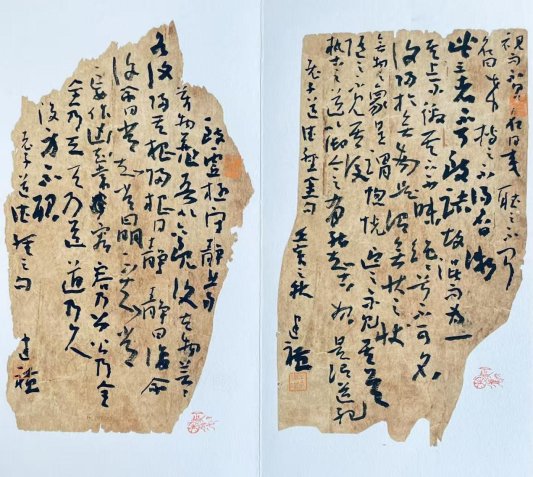 視而不見名曰夷聽之不聞
名曰希搏之不得名曰微
此三者不可致詰故混而為一
其上不皦其下不昧繩繩兮不可名
復歸於無物是謂無狀之狀
無物之象是謂惚恍迎之不見其首
隨之不見其後
執古之道以御今之有能知古始是謂道紀
老子道德經章句 壬寅之秋 建
致虛極守靜篤
萬物並作吾以觀復夫物芸芸
各復歸其根歸根曰靜靜曰復命
復命曰常知常曰明不知常
妄作凶知常容容乃公公乃全
全乃天天乃道道乃久
沒身不殆
老子道德經之句 建